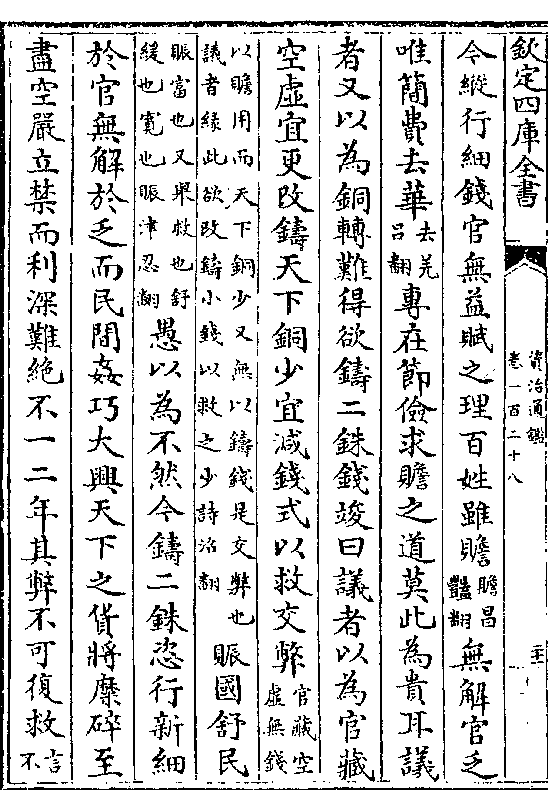 欽定四庫全書
資治通鑑
卷一百二十八
令縱行細錢官無益賦之理百姓雖贍贍昌豔翻無解官乏
唯簡費去華去羌呂翻專在節儉求贍之道莫此為貴耳議
者又以為銅轉難得欲鑄二銖錢竣曰議者以為官藏
空虛宜更改鑄天下銅少宜減錢式以救交弊官藏空虛無錢
以贍用而天下銅少又無以鑄錢是交弊也議者緣此欲改鑄小錢以救之少詩沼翻賑國舒民
賑富也又舉救也舒緩也寬也賑津忍翻愚以為不然今鑄二銖恣行新細
於官無解於乏而民間姦巧大興天下之貨將糜碎至
盡空嚴立禁而利深難絶不一二年其弊不可復救言不